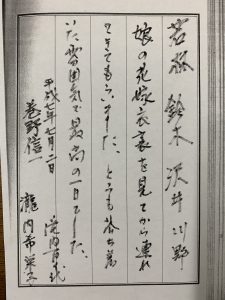 若狐 鈴木 沢井 川野
娘の花嫁衣裳を見てから連れ
てきてもらいました。とても落ち着
いた雰囲気で最高の一日でした。
平成七年七月二日
巻野信一
瀧内